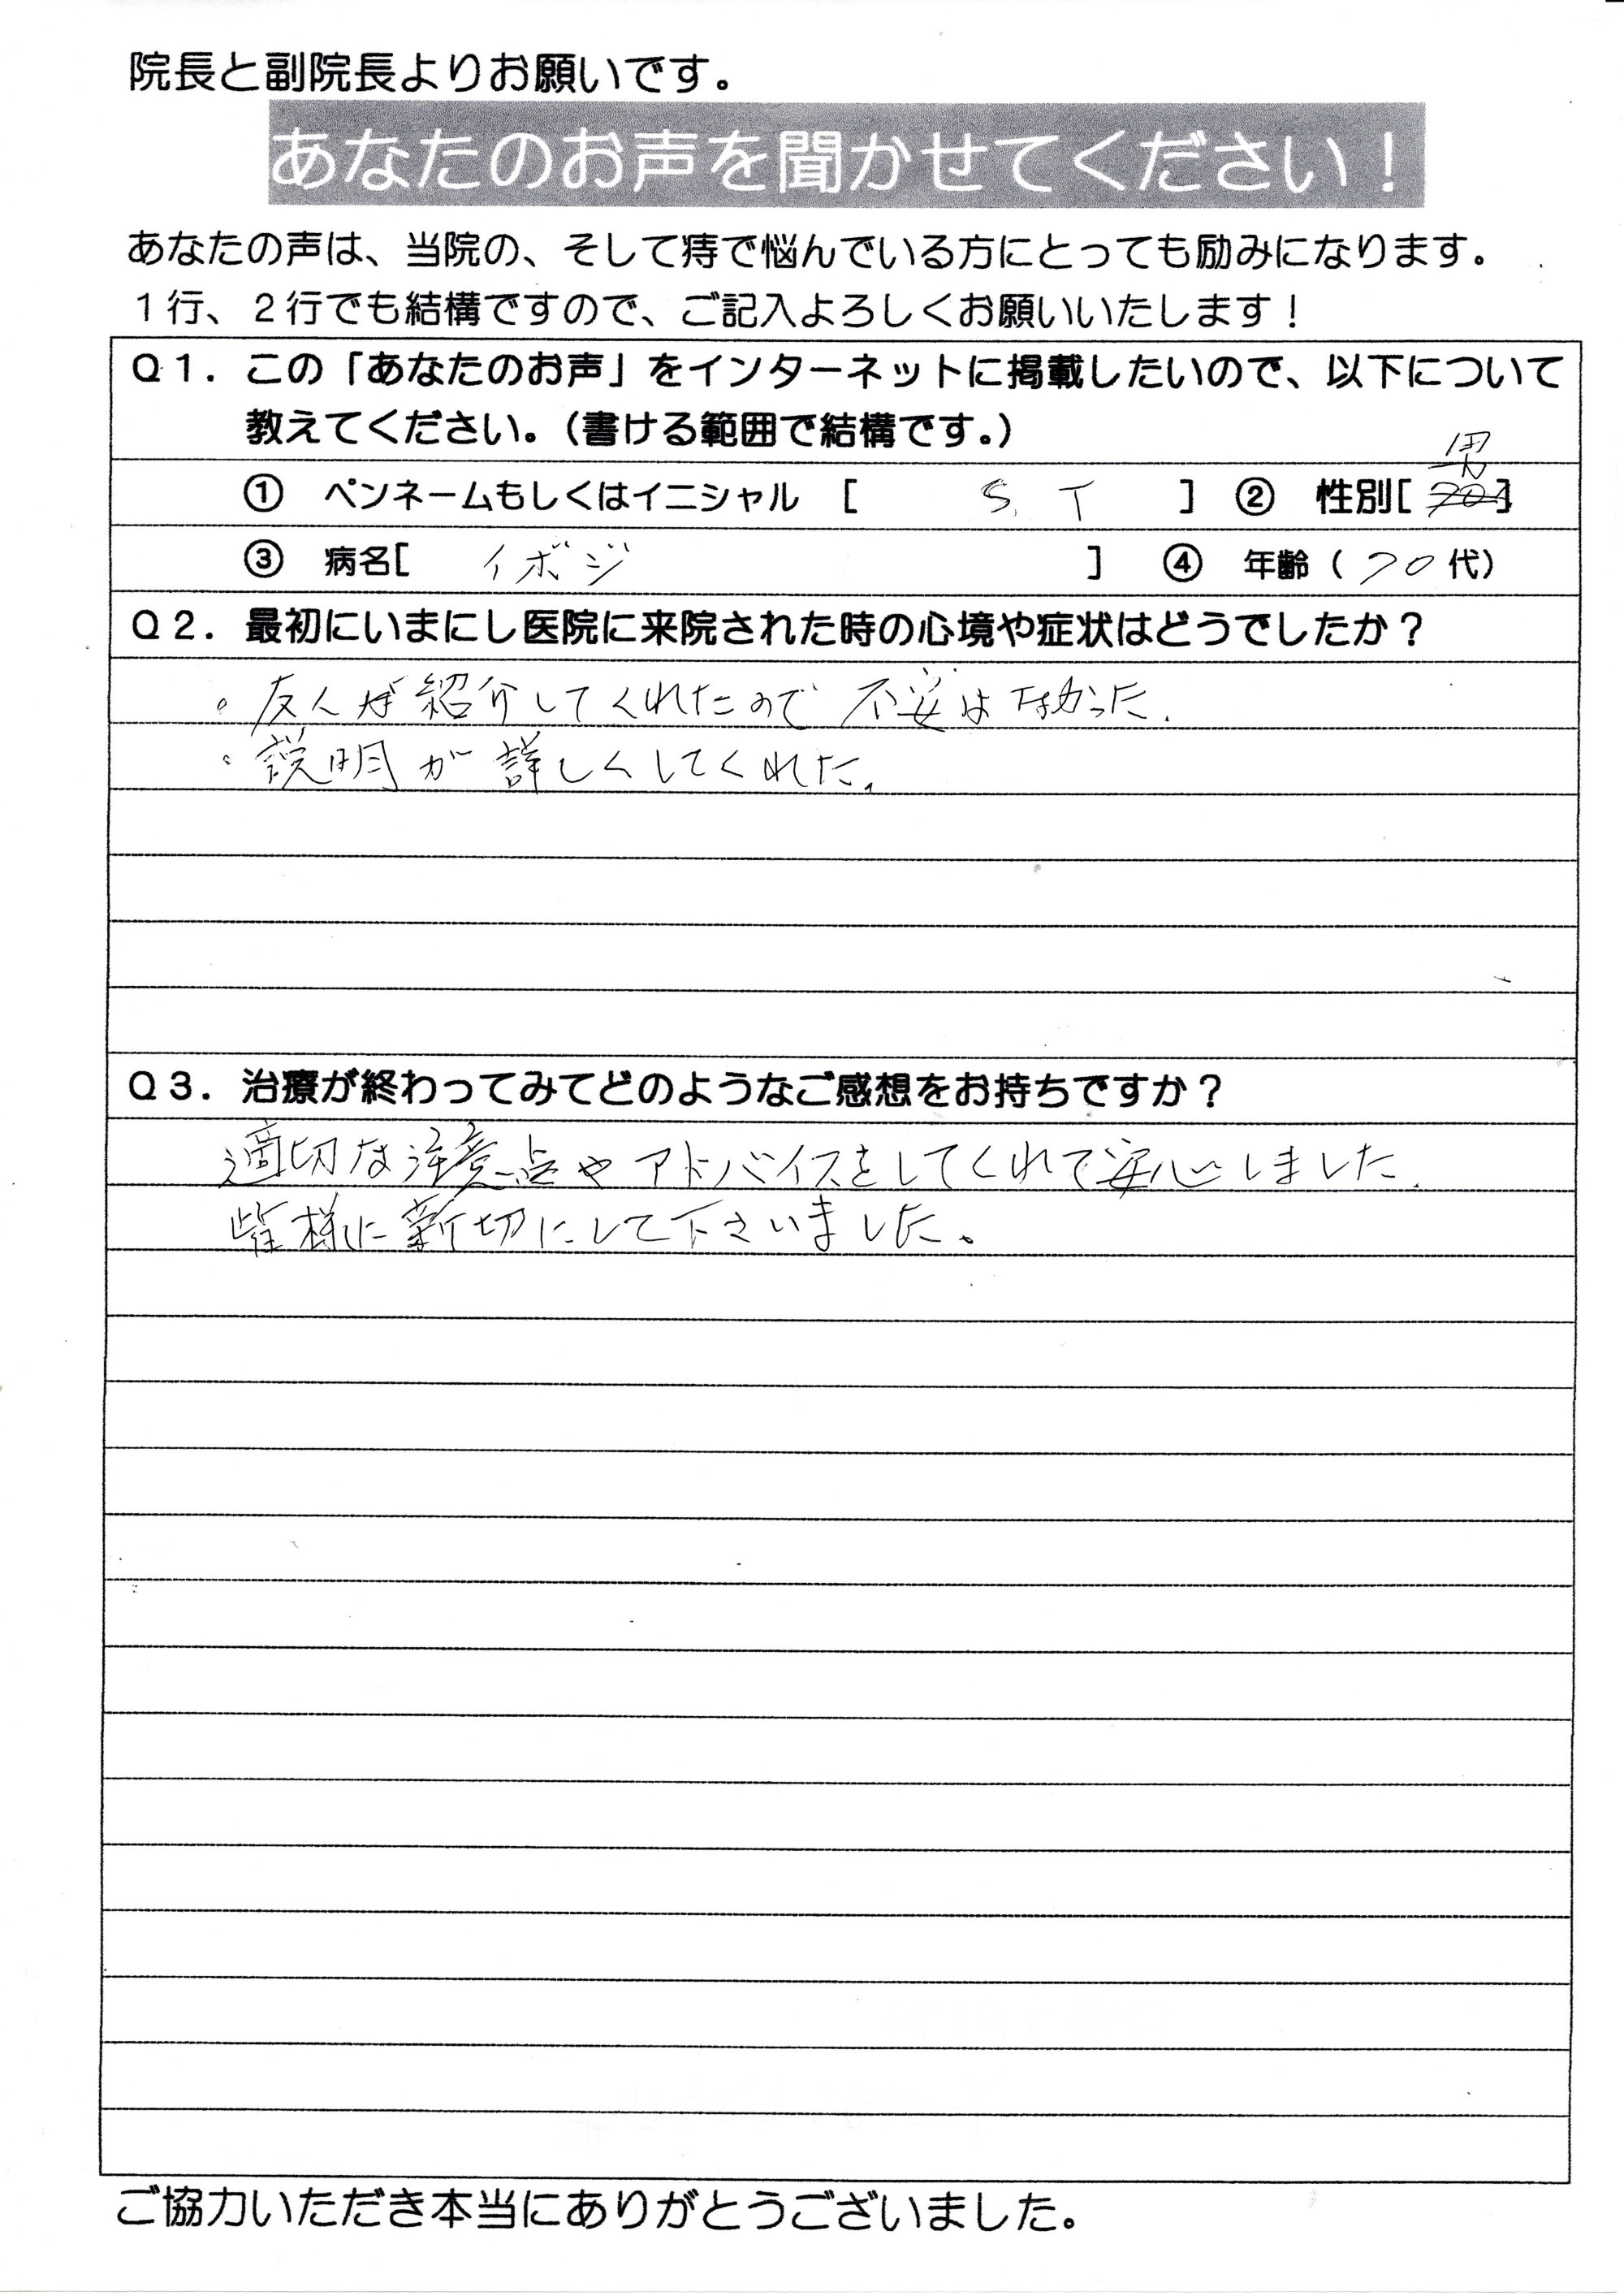 院長と副院長よりお願いです。
あなたのお声を聞かせてください！
あなたの声は、当院の、そして痔で悩んでいる方にとっても励みになります。
１行、２行でも結構ですので、ご記入よろしくお願いいたします！
Ｑ１．この「あなたのお声」をインターネットに掲載したいので、以下について
教えてください。（書ける範囲で結構です。）
男
① ペンネームもしくはイニシャル [ S. T ] ② 性別[ ]
③ 病名[ イボジ ] ④ 年齢（ 70 代）
Ｑ２．最初にいまにし医院に来院された時の心境や症状はどうでしたか？
。友人が紹介してくれたので不安はなかった.
。説明が詳しくしてくれた.
Ｑ３．治療が終わってみてどのようなご感想をお持ちですか？
適切な注意点やアドバイスをしてくれて安心しました.
皆様に新切にして下さいました。
ご協力いただき本当にありがとうございました。